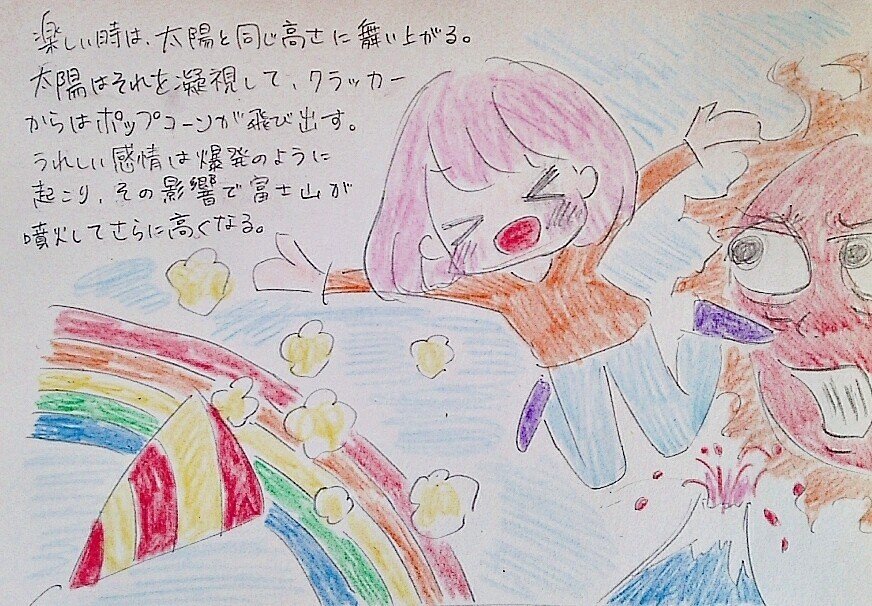 楽しい時は、太陽と同じ高さに舞い上がる。
太陽はそれを凝視して、クラッカー
からはポップコーンが飛び出す。
うれしい感情は爆発のように
起こり、その影響で富士山が
噴火してさらに高くなる。